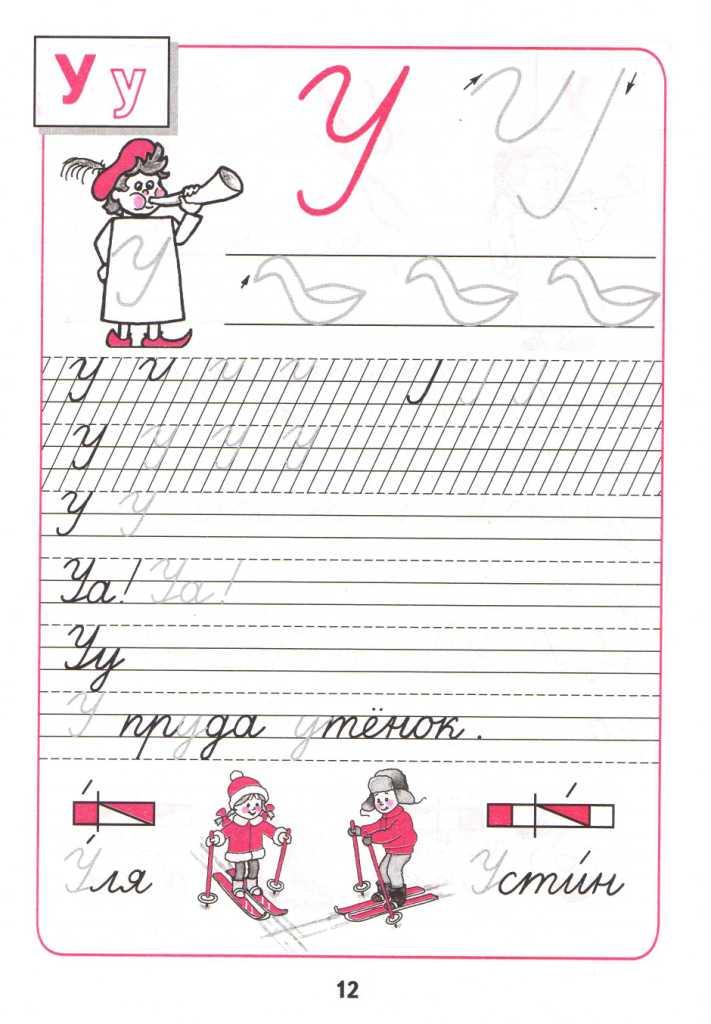 У у
У У
У
У У И И И Ј Ј Ј
У У У У
У У
Уа! Уа!
Уу
У пруда утёнок.
У́ля Усти́н
12